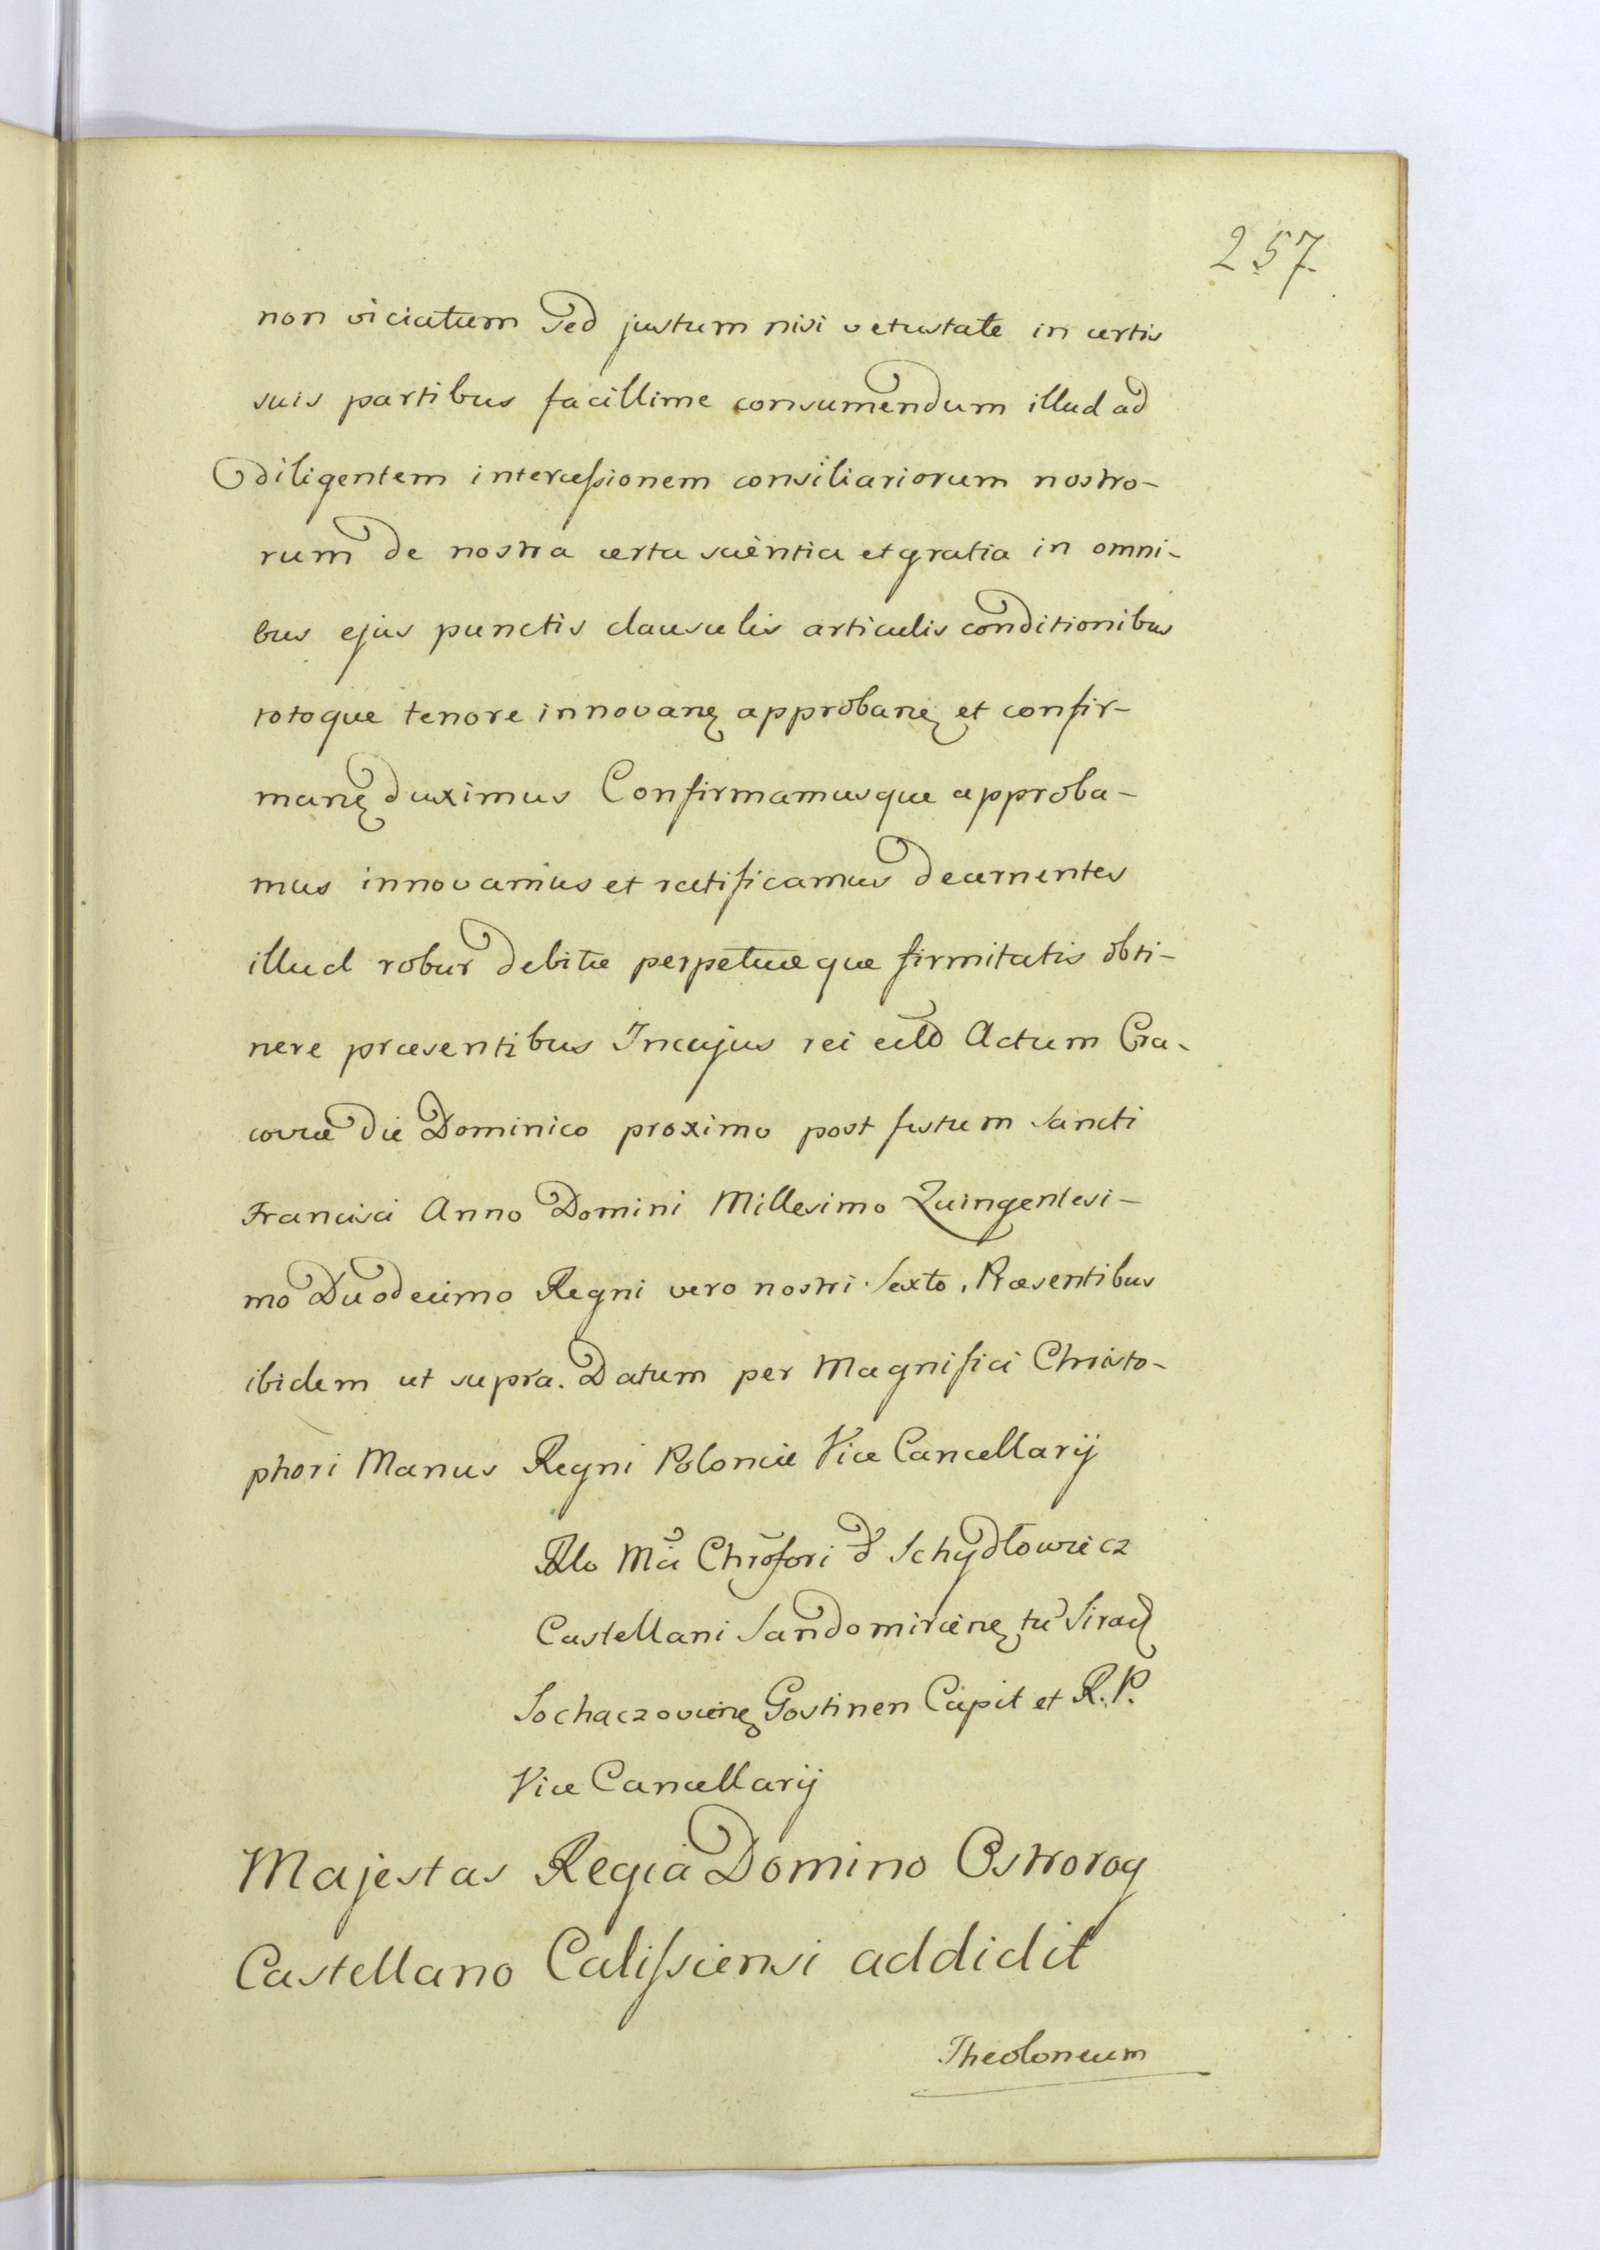 257.
non viciatum sed justum nisi vetustate in certis
suis partibus facillime consumendum illud ad
diligentem intercessionem consiliariorum nostro-
rum de nostra certa scientia et gratia in omni-
bus ejus punctis clausulis articulis conditionibus
totoque tenore innovanꝫ approbanꝫ et confir-
manꝫ duximus Confirmamusque approba-
mus innovamus et ratificamus decernentes
illud robur debitæ perpetuæque firmitatis obti-
nere præsentibus In cujus rei Actum Cra-
coviæ die Dominico proximo post festum Sancti
Francisci Anno Domini Millesimo Quingentesi-
mo Duodecimo Regni vero nostri Sexto. Præsentibus
ibidem ut supra. Datum per Magnifici Christo-
phori Manus Regni Poloniæ Vice Cancellarij
Rlo Mci Chrofori d Schydłowiecz
Castellani Sandomirienꝫ tū Sirad
Sochaczovienꝫ Gostinen Capit et R. P.
Vice Cancellarij
Majestas Regia Domino Ostrorog
Castellano Calissiensi addidit
Theoloneum